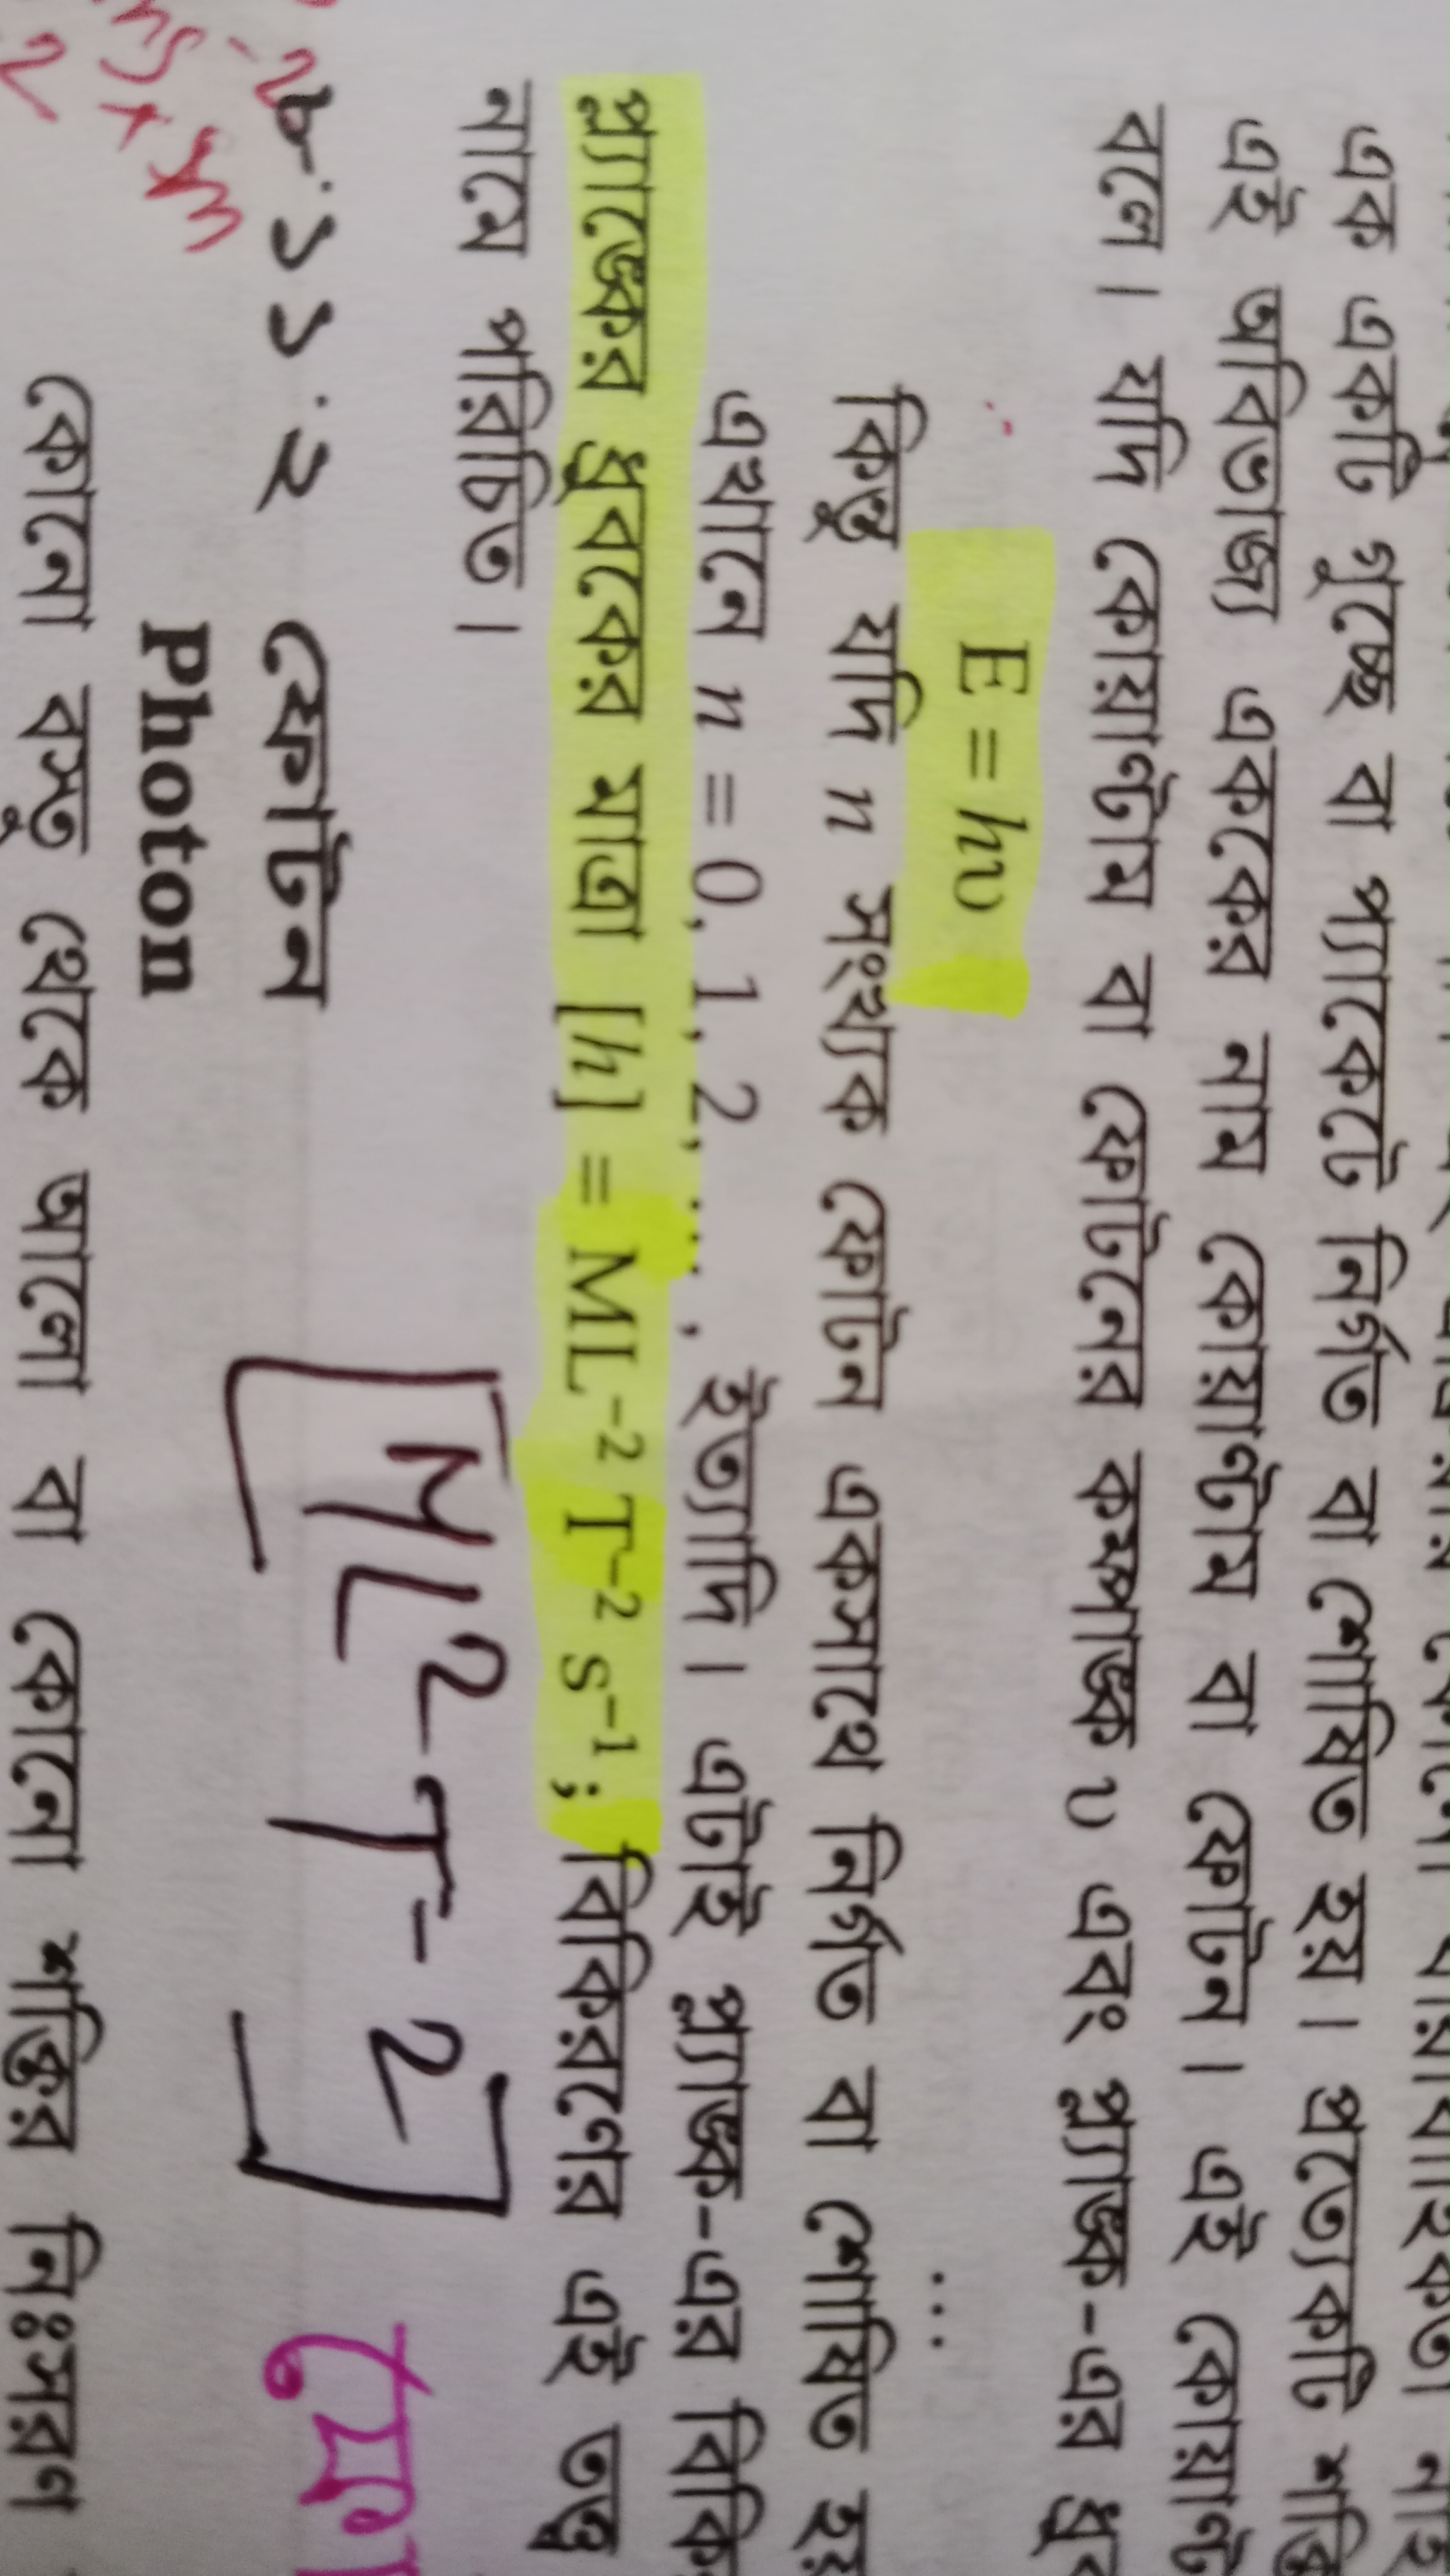 এক একটি গুচ্ছে বা প্যাকেটে নির্গত বা শোষিত হয়। প্রত্যেকটি
এই অবিভাজ্য এককের নাম কোয়ান্টাম বা ফোটন। এই
বলে। যদি কোয়ান্টাম বা ফোটনের কম্পাঙ্ক υ এবং প্ল্যাঙ্ক-এর
E = hυ ...
কিন্তু যদি n সংখ্যক ফোটন একসাথে নির্গত বা শোষিত হয়
এখানে n = 0, 1, 2, ... , ইত্যাদি। এটাই প্ল্যাঙ্ক-এর
প্ল্যাঙ্কের ধ্রুবকের মাত্রা [h] = ML⁻² T⁻² s⁻¹; বিকিরণের এই তত্ত্ব
নামে পরিচিত।
[ML²T-2]
৮.১১.২ ফোটন
Photon
কোনো বস্তু থেকে আলো বা কোনো শক্তির নিঃসরণ